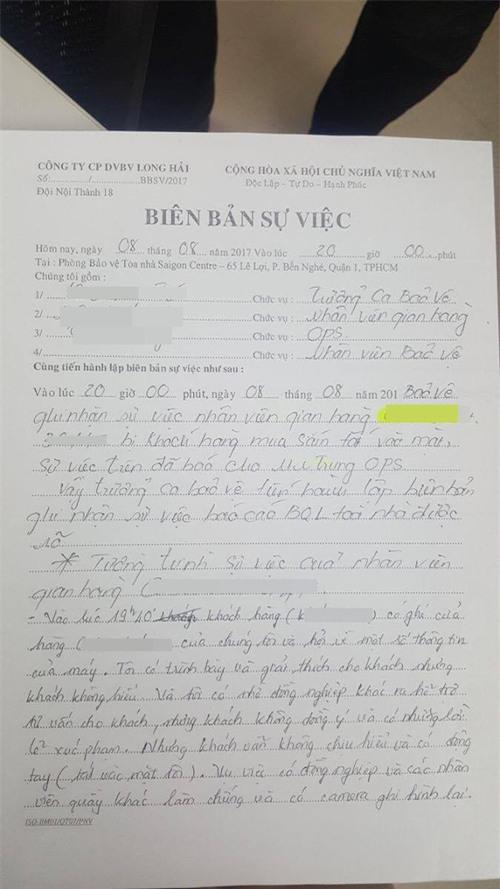 CÔNG TY CP DVBV LONG HẢI CỘNG HÒA XÃ HỘI CHỦ NGHĨA VIỆT NAM
Số:............/...............BBSV/2017 Độc Lập – Tự Do – Hạnh Phúc
Đội Nội Thành 18
BIÊN BẢN SỰ VIỆC
Hôm nay, ngày 08 tháng 08 năm 2017 Vào lúc 20 giờ 00 phút
Tại : Phòng Bảo vệ Tòa nhà Saigon Centre – 65 Lê Lợi, P. Bến Nghé, Quận 1, TPHCM
Chúng tôi gồm :
1/ Chức vụ : Trưởng Ca Bảo Vệ
2/ Chức vụ : Nhân viên gian hàng
3/ Chức vụ : OPS
4/ Chức vụ : Nhân viên Bảo vệ
Cùng tiến hành lập biên bản sự việc như sau :
Vào lúc 20 giờ 00 phút, ngày 08 tháng 08 năm 201 Bảo vệ
ghi nhận sự việc nhân viên gian hàng
bị khách hàng mua sắm tát vào mặt,
sự việc trên đã báo cho Mr Trung OPS
Vậy trưởng ca bảo vệ tiến hành lập biên bản
ghi nhận sự việc báo cáo BQL toà nhà được
rõ
* Tường trình sự việc của nhân viên
gian hàng C
- Vào lúc 19h40' khách hàng (k ) có ghé cửa
hàng ( của chúng tôi và hỏi về một số thông tin
của máy. Tôi có trình bày và giải thích cho khách nhưng
khách không hiểu. Và tôi có nhờ đồng nghiệp khác ra hỗ trợ
tư vấn cho khách, nhưng khách không đồng ý và có những lời
lẽ xúc phạm. Nhưng khách vẫn không chịu hiểu và có động
tay ( tát vào mặt tôi ). Vụ việc có đồng nghiệp và các nhân
viên quầy khác làm chứng và có camera ghi hình lại.
ISO-BM01/QT07/PNV